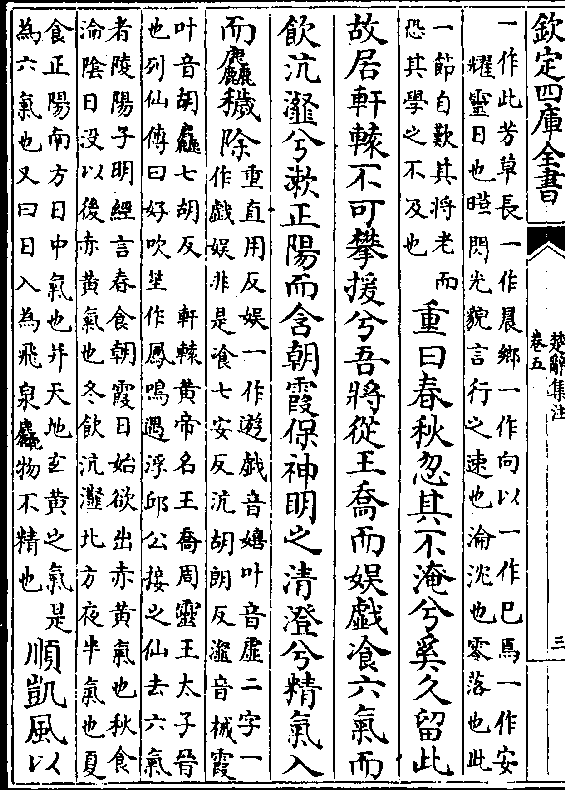 欽定四庫全書
楚辭集注
卷五
三
一作此芳草長一作晨鄉一作向以一作巳焉一作安
耀靈日也曄閃光貌言行之速也淪沈也零落也此
一節自歎其將老而
恐其學之不及也
重曰春秋忽其不淹兮奚久留此
故居軒轅不可攀援兮吾將從王喬而娛戲飡六氣而
飲沆瀣兮漱正陽而含朝霞保神明之清澄兮精氣入
而麤穢除
重直用反娛一作遊戲音嬉叶音虛二字一
作戲娛非是飡七安反沆胡朗反瀣音械霞
叶音胡麤七胡反　軒轅黄帝名王喬周靈王太子晉
也列仙傳曰好吹笙作鳳鳴遇浮邱公接之仙去六氣
者陵陽子明經言春食朝霞日始欲出赤黄氣也秋食
淪陰日没以後赤黄氣也冬飲沆瀣北方夜半氣也夏
食正陽南方日中氣也并天地玄黄之氣是
為六氣也又曰日入為飛泉麤物不精也
順凱風以